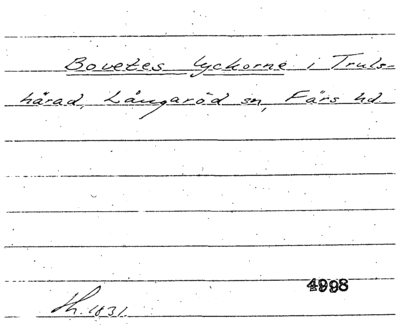 Bovetes lyckorne i Truls=
härad, Långaröd sn, Färs hd
4998
Th. 1831.